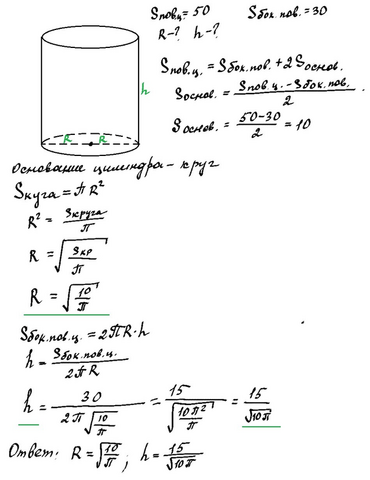 Sпов.ц. = 50 Sбок.пов. = 30
R-? h-?
h
R R
Sпов.ц. = Sбок.пов. + 2Sоснов.
Sоснов. = (Sпов.ц. - Sбок.пов.)/2
Sоснов. = (50-30)/2 = 10
Основание цилиндра - круг
Sкуга = πR²
R² = Sкруга/π
R = √(Sкр/π)
R = √(10/π)
Sбок.пов.ц. = 2πR·h
h = Sбок.пов.ц./2πR
h = 30/(2π√(10/π)) = 15/√(10π²/π) = 15/√(10π)
Ответ: R = √(10/π); h = 15/√(10π)